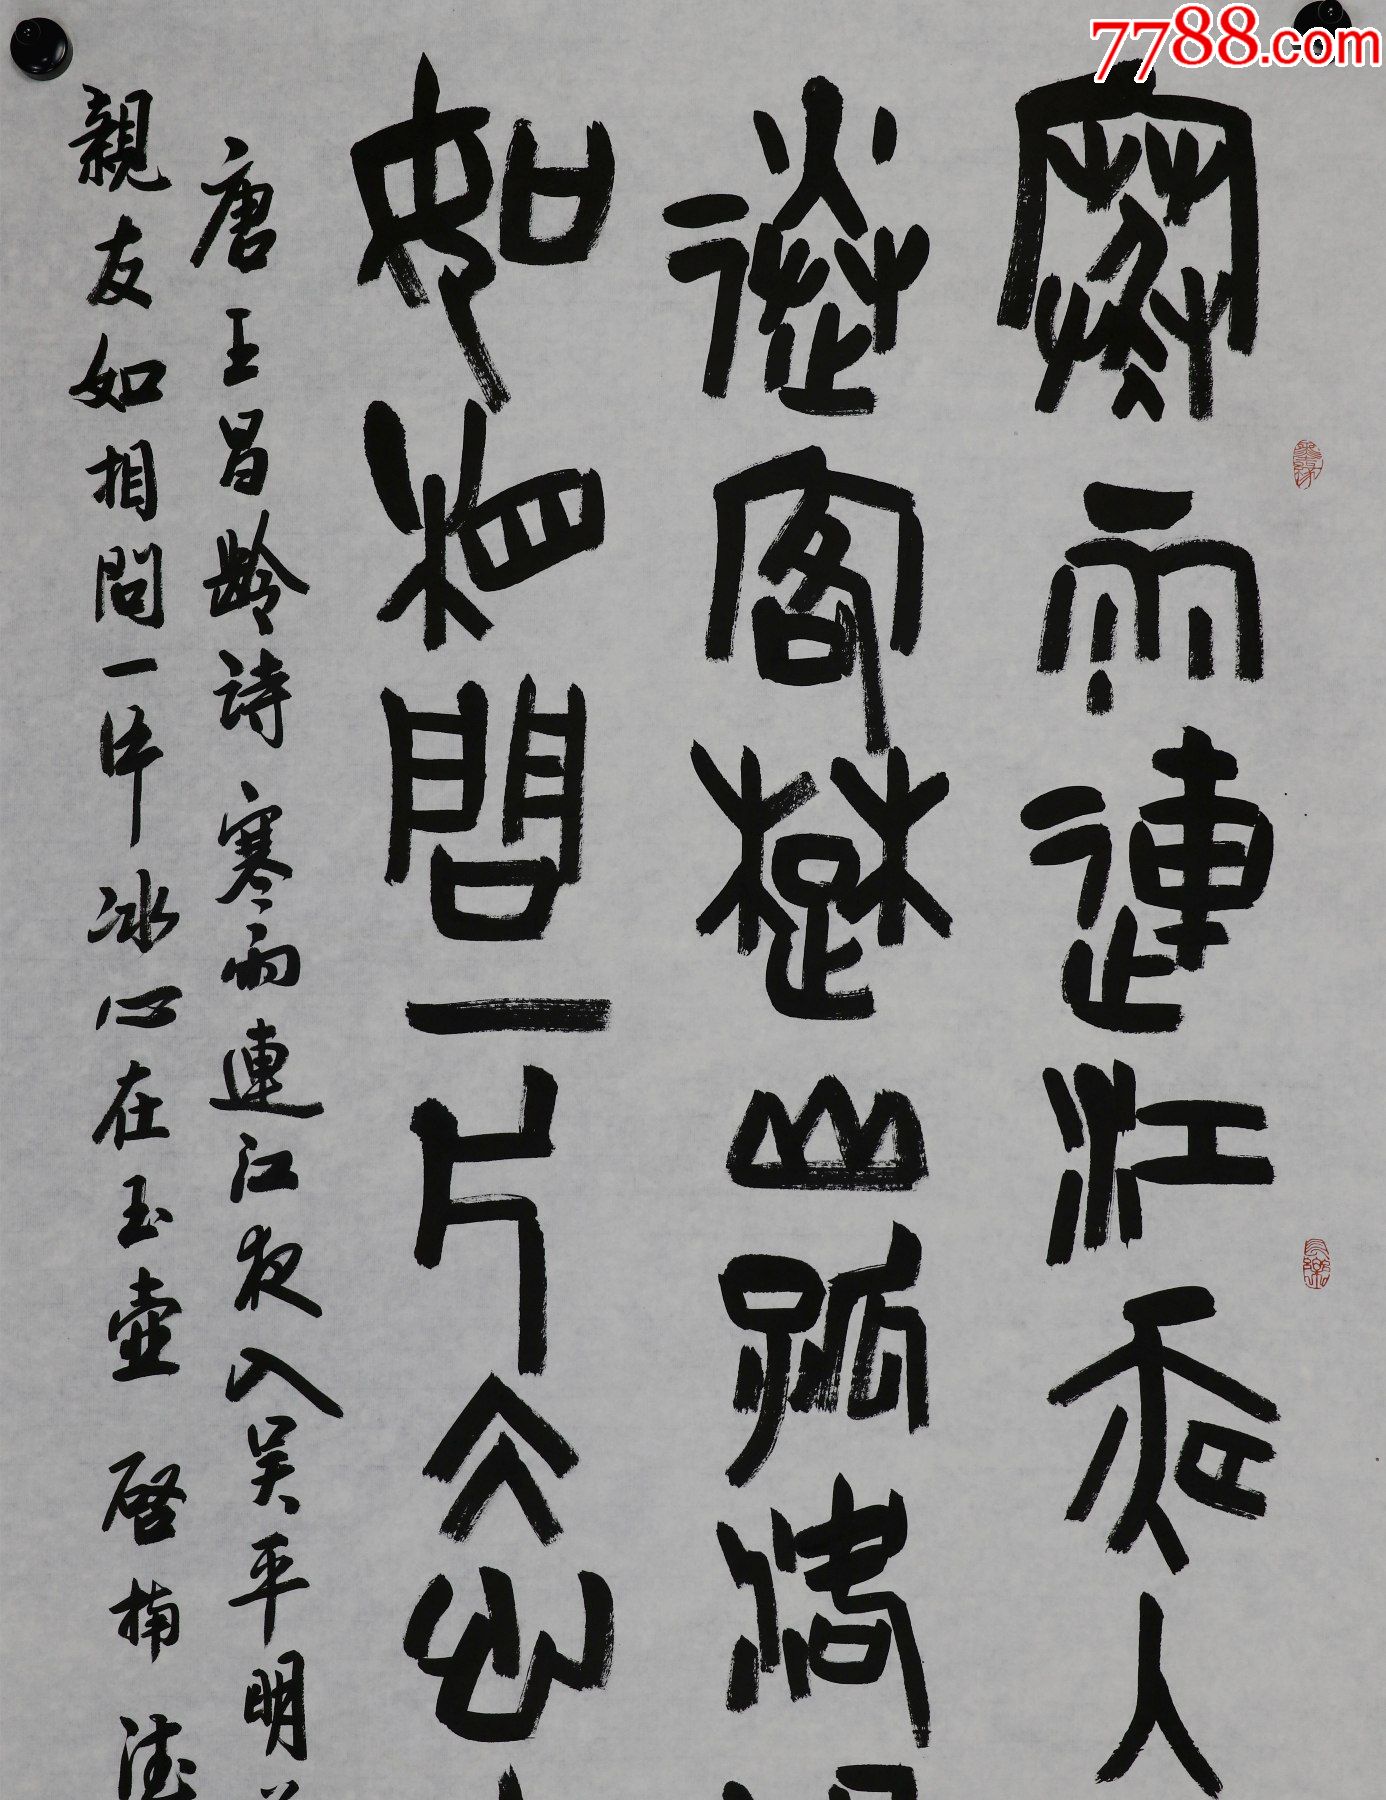 7788.com
寒雨連江夜入
送客楚山孤洛
如相問一片冰心
唐王昌齡詩寒雨連江夜入吳平明
親友如相問一片冰心在玉壺 啓楠